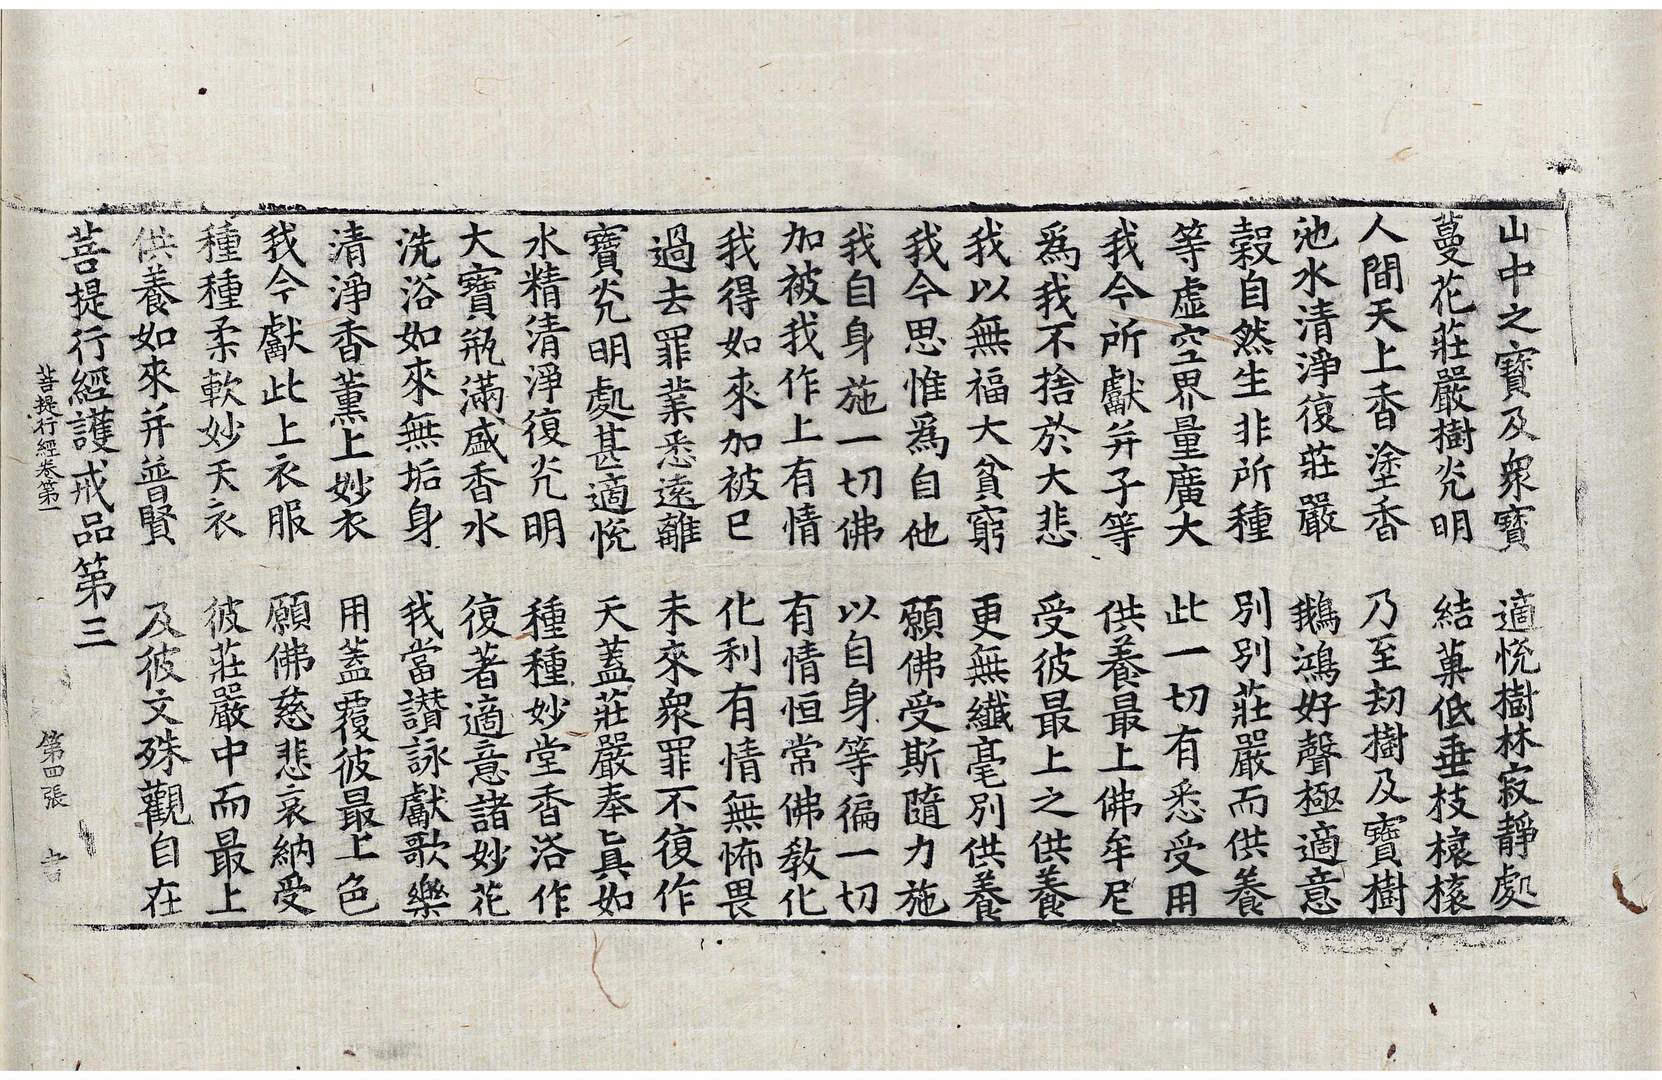 山中之寶及衆寶　適悅樹林寂靜處
蔓花莊嚴樹光明　結菓低垂枝榱榱
人間天上香塗香　乃至劫樹及寶樹
池水清淨復莊嚴　鵝鴻好聲極適意
穀自然生非所種　別別莊嚴而供養
等虛空界量廣大　此一切有悉受用
我今所獻并子等　供養最上佛牟尼
爲我不捨於大悲　受彼最上之供養
我以無福大貧窮　更無纖毫別供養
我今思惟爲自他　願佛受斯隨力施
我自身施一切佛　以自身等徧一切
加被我作上有情　有情恒常佛教化
我得如來加被已　化利有情無怖畏
過去罪業悉遠離　未來衆罪不復作
寶光明處甚適悅　天蓋莊嚴奉眞如
水精清淨復光明　種種妙堂香浴作
大寶瓶滿盛香水　復著適意諸妙花
洗浴如來無垢身　我當讚詠獻歌樂
清淨香薰上妙衣　用蓋覆彼最上色
我今獻此上衣服　願佛慈悲哀納受
種種柔軟妙天衣　彼莊嚴中而最上
供養如來并普賢　及彼文殊觀自在
菩提行經護戒品第三
菩提行經卷第一　第四張　書